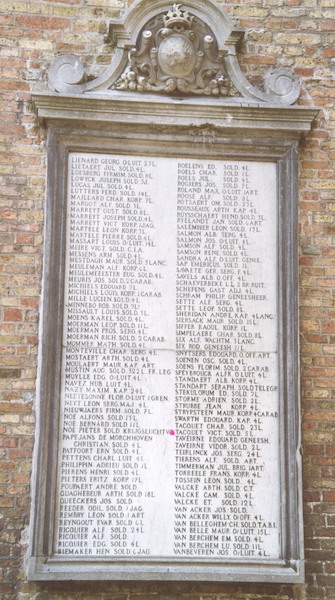 LIENARD GEORG. O.LUIT 23L.
LIETAERT JUL. SOLD. 4L.
LOESBERG FIRMIM SOLD. 4L.
LOWYCK JOSEPH SOLD. 3J.
LUCAS JUL. SOLD. 4L.
LUTTERS FERD. SOLD. 14L.
MAILLARD CHAR. KORP. 7L.
MARGOT ALF. SOLD. 3L.
MARREYT GUST. SOLD. 8L.
MARREYT JOSEPH SOLD. 4L.
MARREYT VICT. KORP. 1JAG.
MARTELE LEON KORP. 3L.
MARTELE PIERRE SOLD. 4L.
MASSART LOUIS O.LUIT. 14L.
MEIRE VICT. SOLD. C.T.A.
MESSENS ARM. SOLD. 4L.
MESTDAGH MAUR. SOLD. 3LANC.
MEULEMAN ALF. KORP. 6L.
MEULEMEESTER EUG. SOLD. 4L.
MEURS JOS. SOLD. 24L.
MICHIELS EDOUARD 1L.
MICHIELS LOUIS KORP. 1CARAB.
MILLE LUCIEN SOLD. 24L.
MINNEBO ROB. SOLD. 2L.
MISSAULT LOUIS SOLD. 3L.
MOENS KAREL SOLD. 4L.
MOERMAN LEOP. SOLD. 11L.
MOERMAN PROS. SERG. 4L.
MOERMAN RICH. SOLD. 2 CARAB.
MOMMER MATH. SOLD. 4L.
MONTEVILLE CHAR. SERG. 4L.
MOSTAERT ARTH. SOLD. 4L.
MOULAERT MAUR. KAP. ART.
MUSTIN AUG. SOLD. 322L. FR. LEG
MUYLLE EDG. O-LUIT 4L.
NAVEZ HUB. LUIT. 4L.
NAZY MAXIM. KAP. 24L.
NIETTESONNE FLOR. O-LUIT 2GREN.
NEYT LEON SERG. MAJ. 4L.
NIEUWJAERS FIRM. SOLD. 7L.
NOE ALFONS SOLD. 13L.
NOE BERNARD SOLD. 11L.
NOE PIETER SOLD.
PAPEJANS DE MORCHHOVEN
CHRISTIAN SOLD. 4L.
PATFOORT ERN. SOLD. 4L.
PETTENS CHARL. LUIT. 4L.
PHILIPPIN ADRIEU SOLD. 1L.
PIERENS HENRI SOLD. 4L.
PIETERS FRITZ KORP. 17L.
POUPAERT ANDRE SOLD.
QUAGHEBEUR ARTH. SOLD. 18L.
QUEECKERS JOS. SOLD.
REEDER ODIL. SOLD. 1JAG.
REMERY LEON SOLD. 1 ART.
REYNGOUT EVAR. SOLD. 6L.
RICQUIER ALF. SOLD. 24L.
RICQUIER ALF. SOLD.
RICQUIER EDG. SOLD. 4L.
RIEMAKER HEN. SOLD. 6 JAG.
ROELENS ED. SOLD. 4L.
ROELS CHAR. SOLD. 1L.
ROELS JUL. SOLD. 4L.
ROGIERS JOS. SOLD. 7L.
ROLAND MAX O.LUIT 1ART.
ROOSE ALF. SOLD. 8L.
ROTSAERT OM. SOLD. 3L.
ROUSSEAUX ARTH. KAP. 4L.
RUYSSCHAERT HEND. SOLD. 3L.
RYELANDT JAN SOLD. 6 ART.
SALEMBIER LEON SOLD. 13L.
SALMON AEB. SERG. 4L.
SALMON JOS. O-LUIT. 4L.
SAMSON ALF. SOLD. 4L.
SAMSON RENE SOLD. 4L.
SANDRA ALF. O-LUIT GENIE
SAP EMERICUS SOLD. 2L.
SAVAETE GER. SERG. F. 4L.
SAVELS ALB. O.AFF. 4L.
SCHAEVERBEKE L. L. 2 BR RUIT
SCHEPENS GAST. ADJ. 4L.
SCHRAM PHILIP. GENEESHEER.
SETTE ALF. SERG. 4L.
SETTE LEOP. SOLD. 8L.
SHERIDAN ANDRE KAP. 4 LANC.
SIESACK MAUR. SOLD. 16L.
SIFFER RAOUL KORP. 1L.
SIMPELAERE CHAR. SOLD. 8L.
SIX ALF. WACHTM. 3LANC.
SIX RENE GENEESH. 11L.
SNYTSERS EDOUARD O.OFF. ART.
SOENEN OSC. SOLD. 4L.
SOENS FLORIM. SOLD. 2 CARAB.
SPEYBROUCK ALFR. O.LUIT. 6L.
STANDAERT ALB. KORP. 4L.
STANDART SERAPH. SOLD. TELEGR.
STEKELORUM ED. SOLD. 2L.
STORME ADRIEN SOLD. 2L.
STRUBBE JEAN KORP. 4L.
STRYPSTEEN MAUR. KORP. 4CARAB.
SWARTH EDOUARD KAP. 4L.
TACQUET CHAR. SOLD. 23L.
TACQUET VICT. SOLD. 5L.
TAVEIRNE EDOUARD GENEESH.
TAVEIRNE VIDOR. SOLD. 2L.
TEIRLINCK JOS. SERG. 24L.
TIERENS ALF. SOLD. ART.
TIMMERMAN JUL. BRIG. 1ART.
TORREELE FRANS. KORP. 4L.
TOSSEIN LEON. SOLD. 4L.
VALCKE ARTH. SOLD. C.T.
VALCKE CAM. SOLD. 4L.
VALCKE ET. SOLD. 12L.
VAN ACKER JOS. SOLD.
VAN ACKER WILLY O/OFF. 4L.
VAN BELLEGHEM CH. SOLD. T.A.B.I.
VAN BELLE MAUR. O/LUIT. 15L.
VAN BERCHEM EM. SOLD. 4L.
VAN BERCHEM LU. SOLD. 11L.
VANBEVEREN JOS. O/LUIT. 4L.